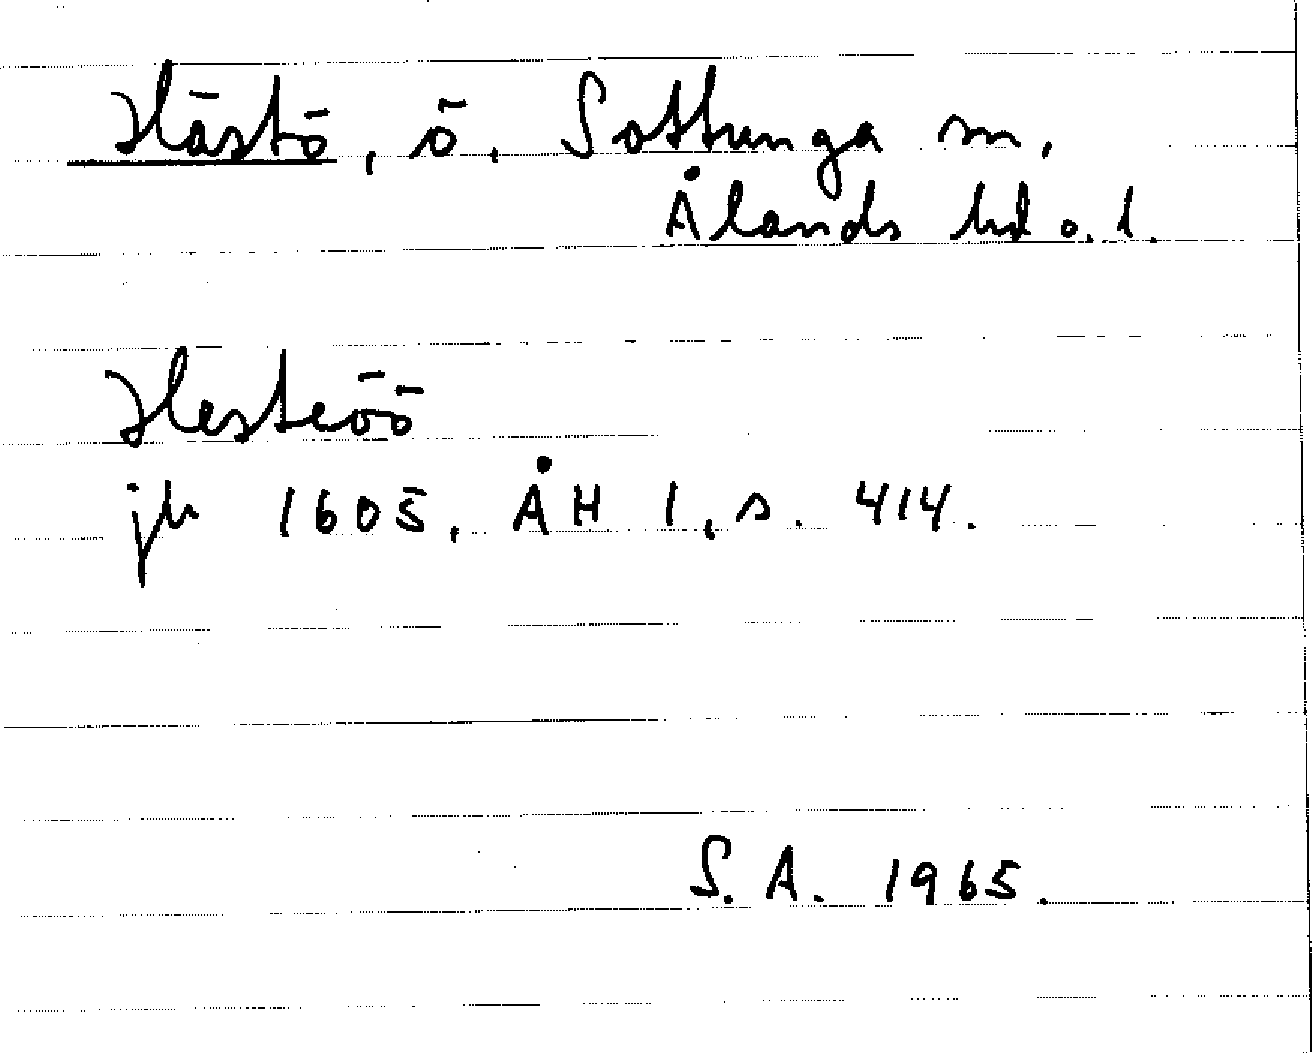 Hästö, ö, Sottunga sn,
Ålands hd o. l.
Hesteöö
jb 1605, ÅH 1, s. 414.
S. A. 1965.